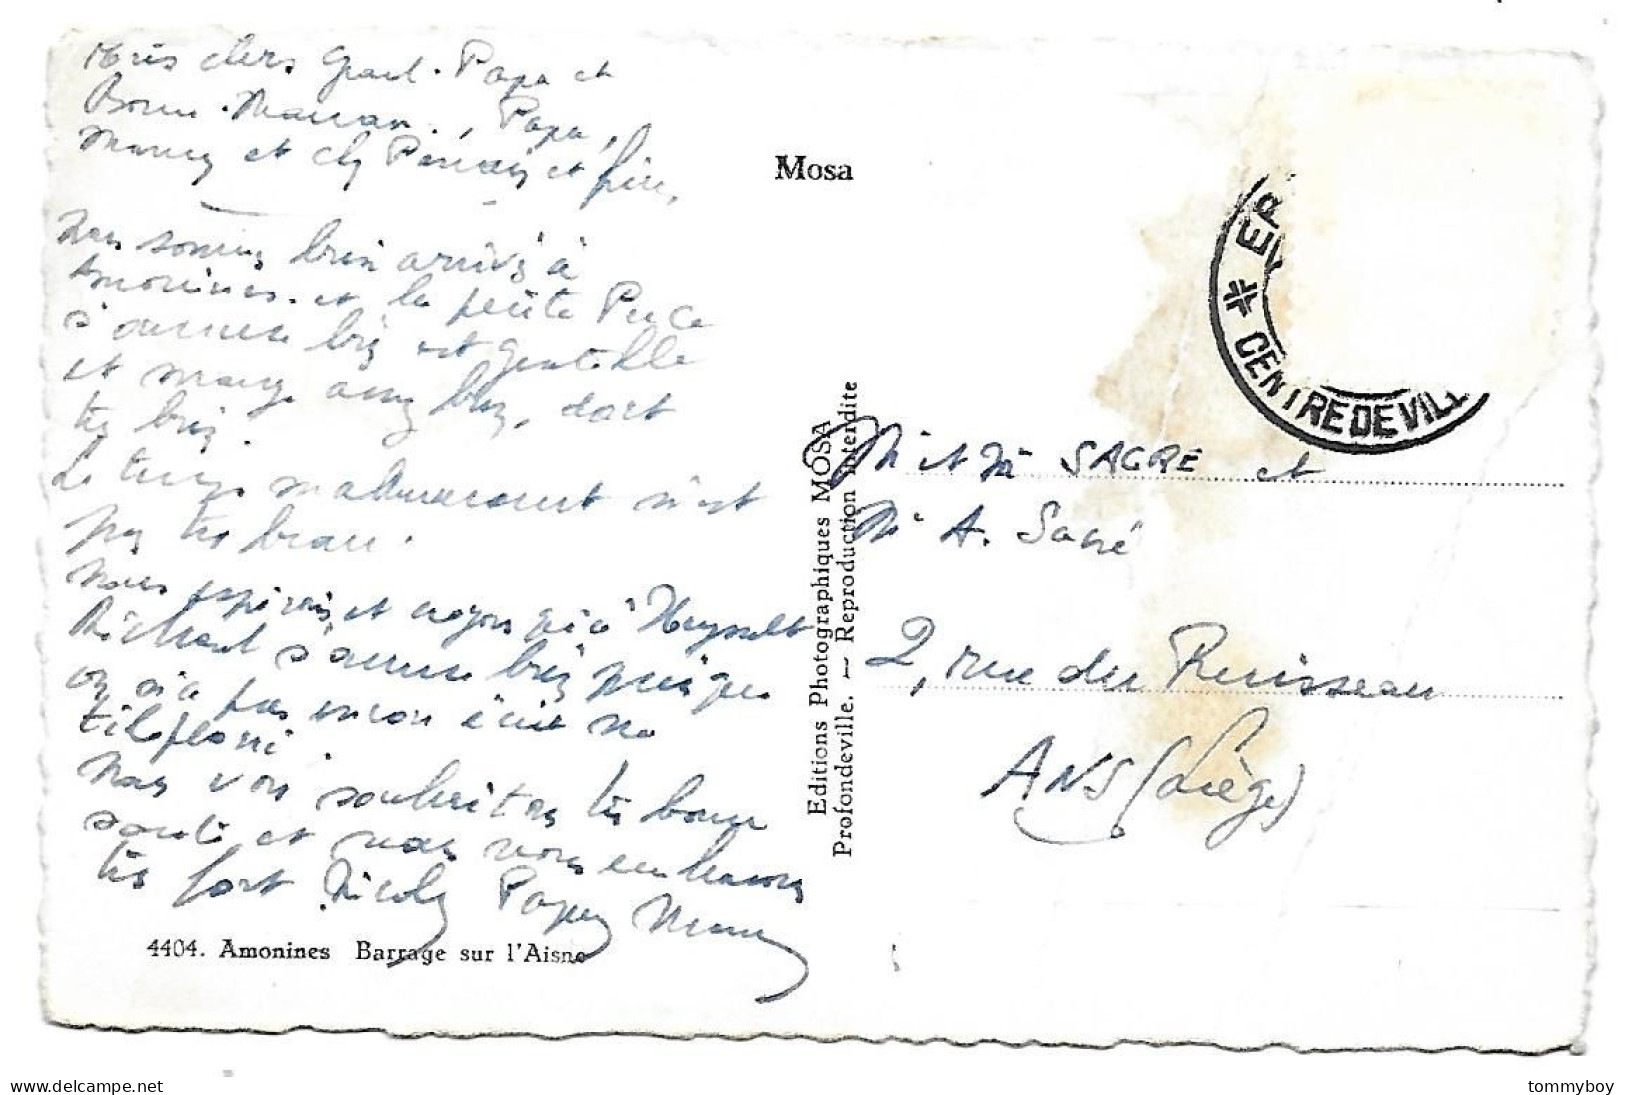 Très chers Grand-Papa et
Bonne-Maman, Papa,
Mamy et
Nous sommes bien arrivés à
Amonines et la petite Puce
s'amuse bien est gentille
et mange assez bien, dort
très bien.
Le temps malheureusement n'est
pas très beau.
Nous espérons et croyons qu'à
Richard s'amuse bien puisque
on n'a pas encore écrit ni
téléphoné.
Nous vous souhaitons très bonne
santé et nous vous embrassons
très fort. Nicoly Papy Mamy
4404. Amonines Barrage sur l'Aisne
Mosa
Editions Photographiques MOSA
Profondeville. — Reproduction interdite
CENTRE DE VILL
Mr et Me SAGRE et
Mr A. Sacré
2, rue du Ruisseau
ANS (Liège)
delcampe.net
tommyboy